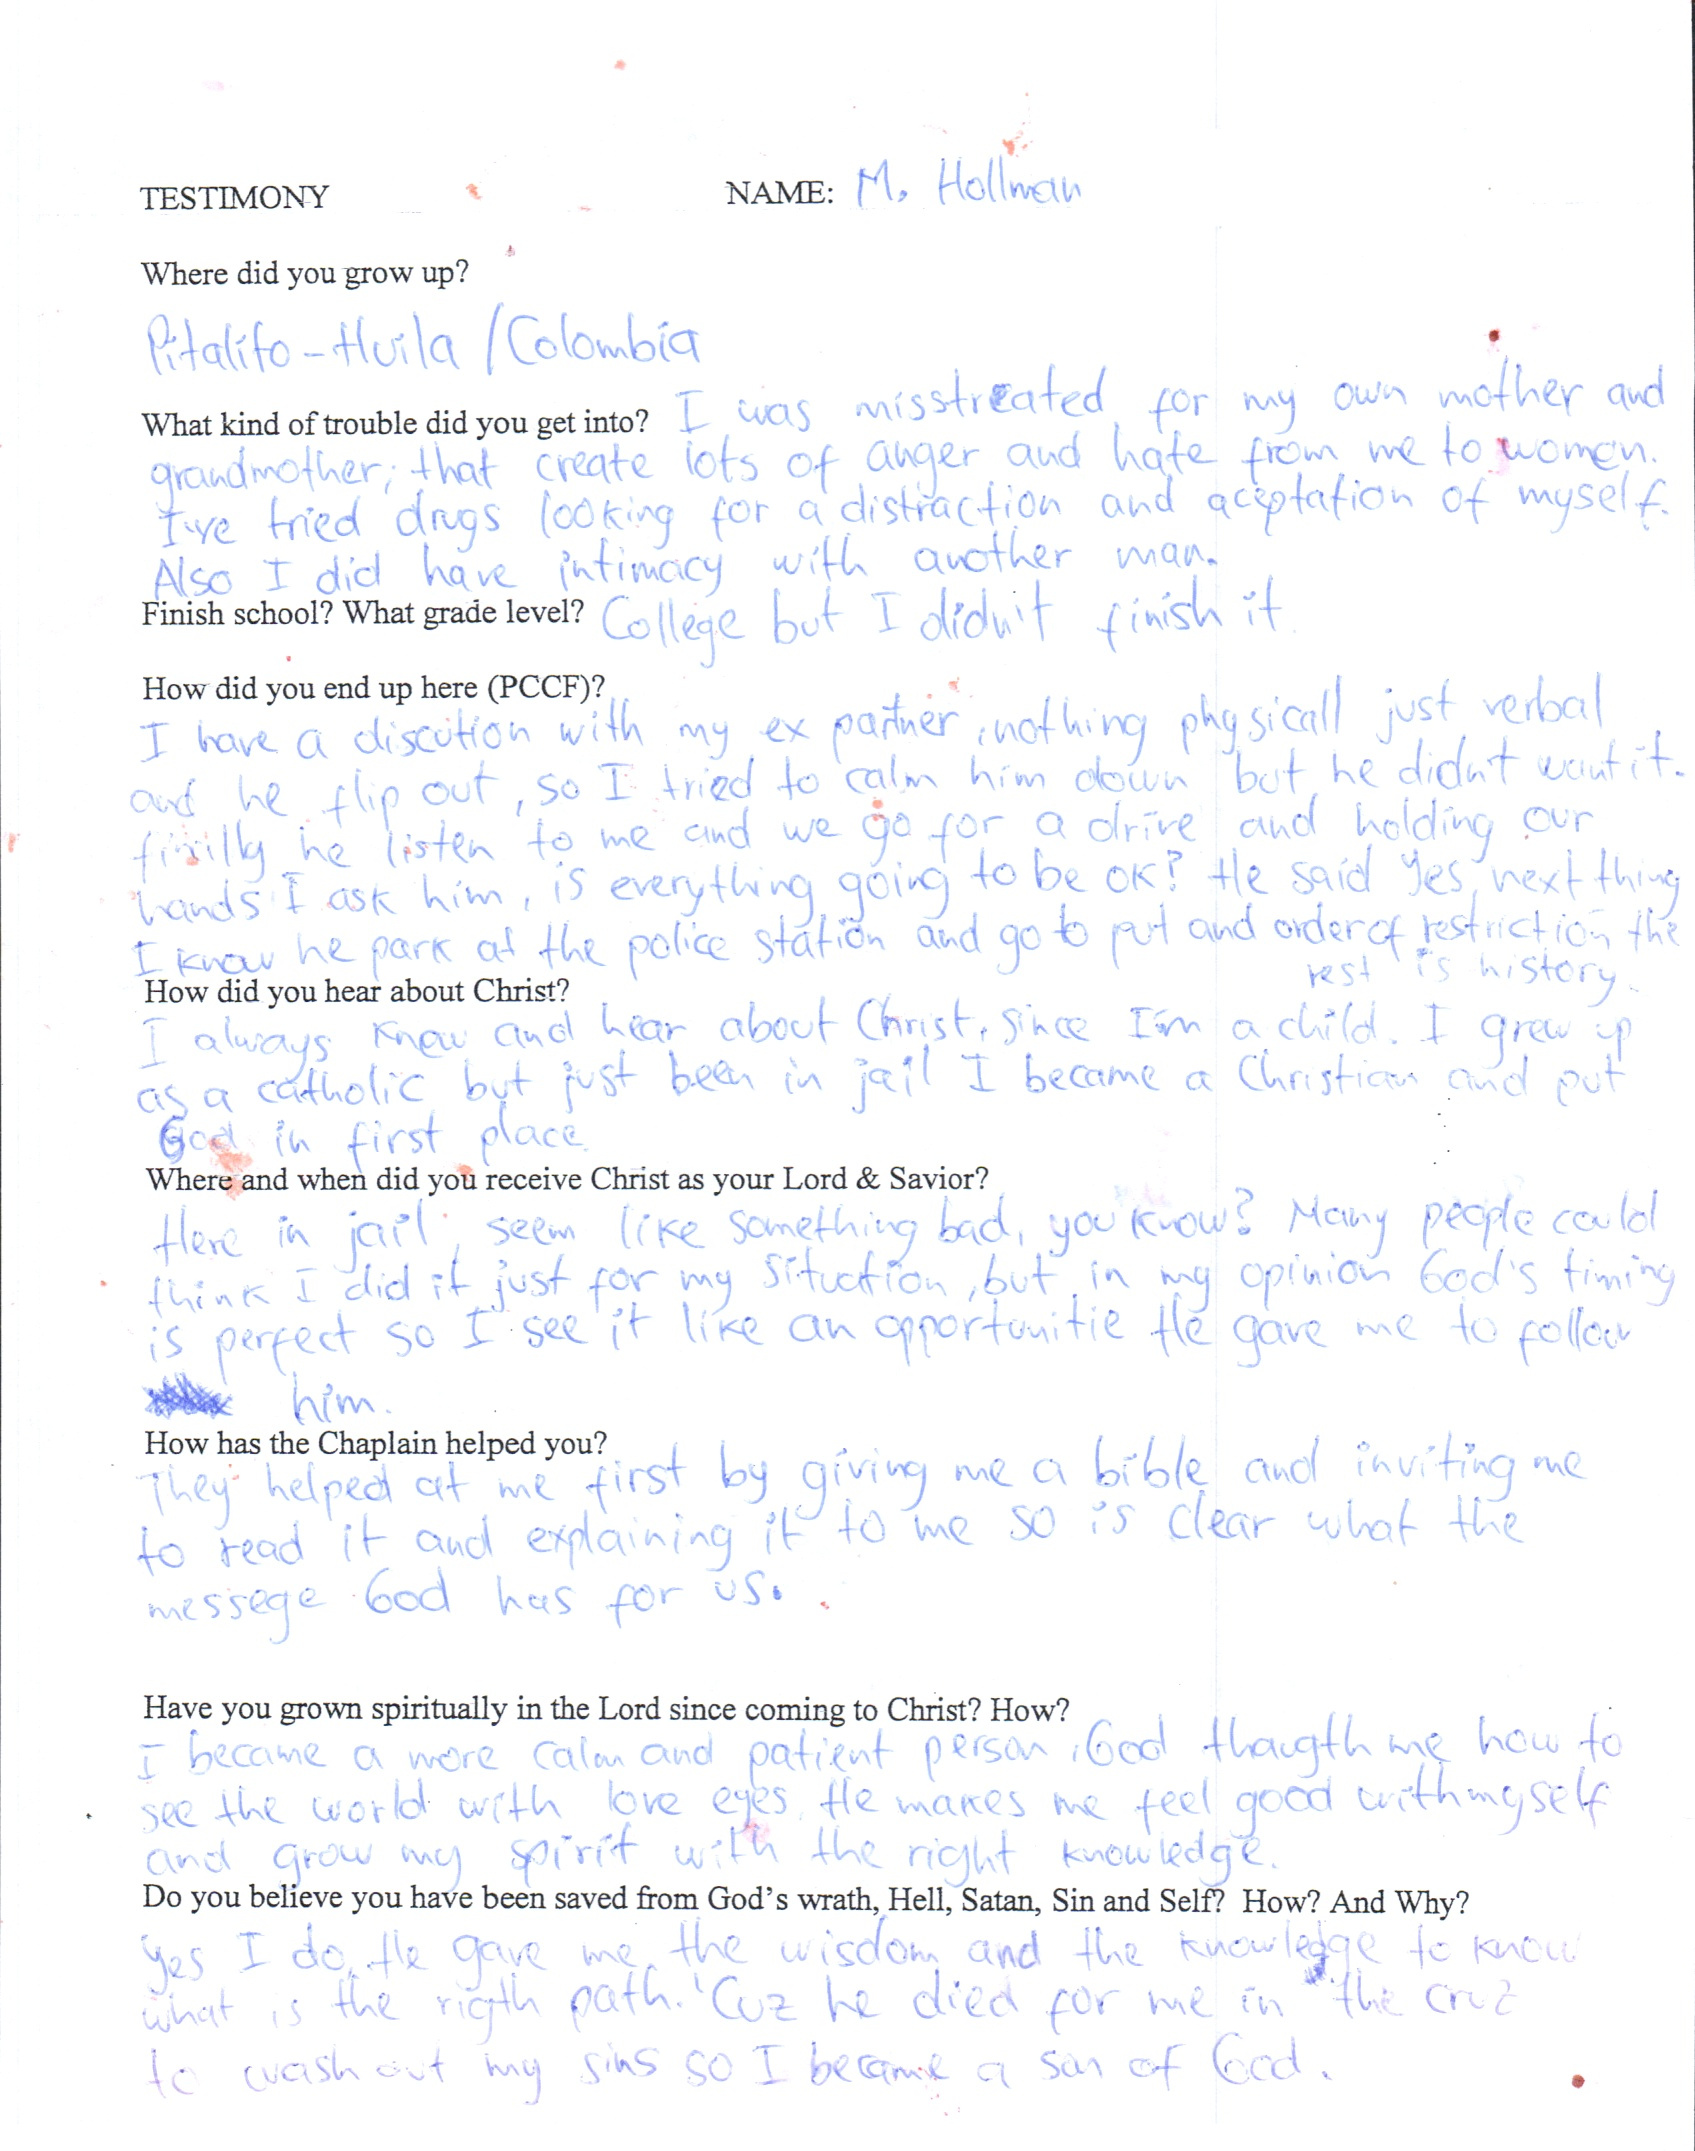 TESTIMONY NAME: M. Hollman
Where did you grow up?
Pitalito-Huila / Colombia
What kind of trouble did you get into? I was misstreated for my own mother and
grandmother; that create lots of anger and hate from me to women.
I've tried drugs looking for a distraction and aceptation of myself.
Also I did have intimacy with another man.
Finish school? What grade level? College but I didn't finish it
How did you end up here (PCCF)?
I have a discution with my ex partner, nothing physicall just verbal
and he flip out, so I tried to calm him down but he didn't want it.
finilly he listen to me and we go for a drive and holding our
hands I ask him, is everything going to be ok? He said Yes, next thing
I know he park at the police station and go to put and order of restriction the
rest is history.
How did you hear about Christ?
I always knew and hear about Christ, since I'm a child. I grew up
as a catholic but just been in jail I became a Christian and put
God in first place.
Where and when did you receive Christ as your Lord & Savior?
Here in jail, seem like something bad, you know? Many people could
think I did it just for my situation, but in my opinion God's timing
is perfect so I see it like an opportunitie He gave me to follow
him.
How has the Chaplain helped you?
They helped at me first by giving me a bible and inviting me
to read it and explaining it to me so is clear what the
messege God has for us.
Have you grown spiritually in the Lord since coming to Christ? How?
I became a more calm and patient person, God thaugth me how to
see the world with love eyes. He makes me feel good with myself
and grow my spirit with the right knowledge.
Do you believe you have been saved from God's wrath, Hell, Satan, Sin and Self? How? And Why?
Yes I do, He gave me the wisdom and the knowledge to know
what is the rigth path. 'Cuz he died for me in the cruz
to wash out my sins so I became a son of God.